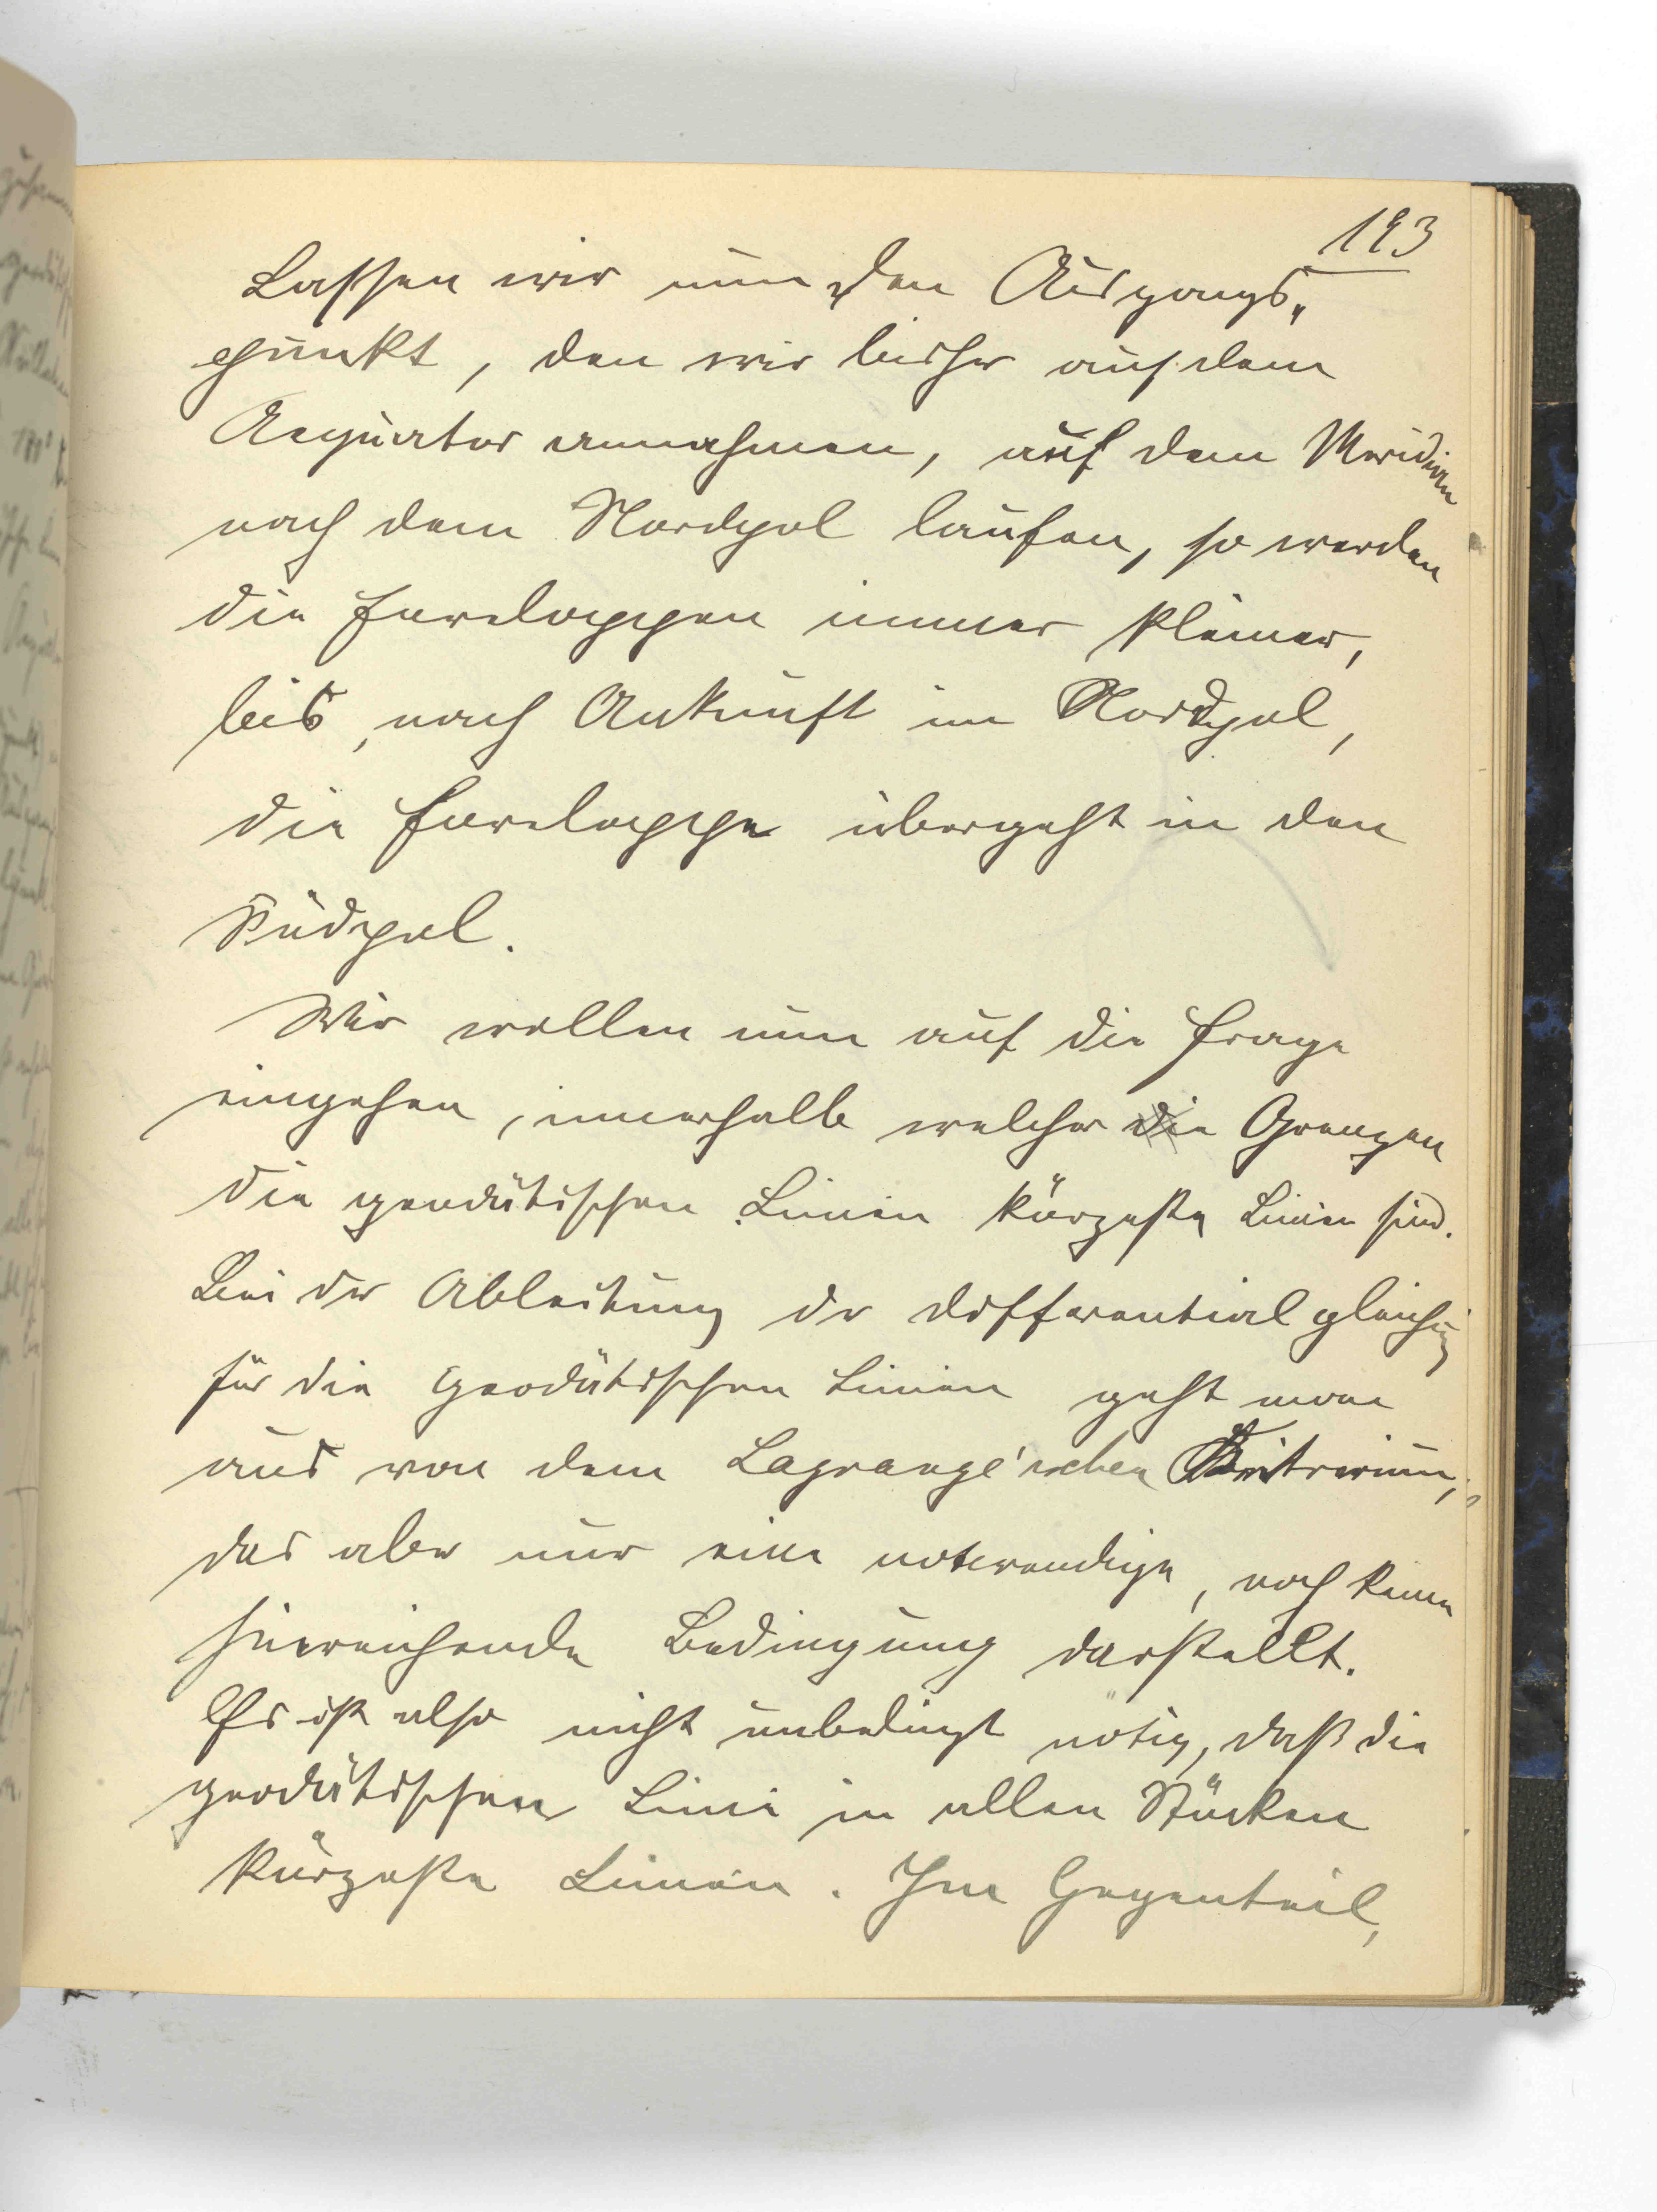 193
Lassen wir nun den Ausgangs„
punkt, den wir bisher auf dem
Aequator annahmen, auf dem Meridian
nach dem Nordpol laufen, so werden
die Enveloppen immer kleiner,
bis, nach Ankunft im Nordpol,
die Enveloppe übergeht in den
Südpol.
Wir wollen nun auf die Frage
eingehen, innerhalb welcher die Grenzen
die geodätischen Linien kürzeste Linien sind.
Bei der Ableitung der Differentialgleichung
für die geodätischen Linien geht man
aus von dem Lagrange'schen Kriterium,
das aber nur eine notwendige, noch keine
hinreichende Bedingung darstellt.
Es ist also nicht unbedingt nötig, daß die
geodätischen Linie in allen Stücken
kürzeste Linien. Im Gegenteil,